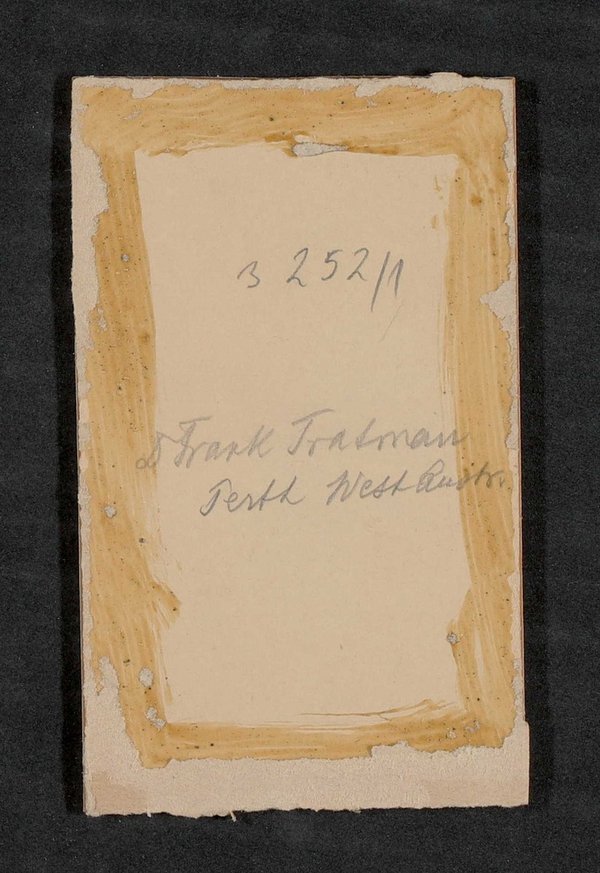 B 252/1
D Frank Tratman
Perth West Austr.